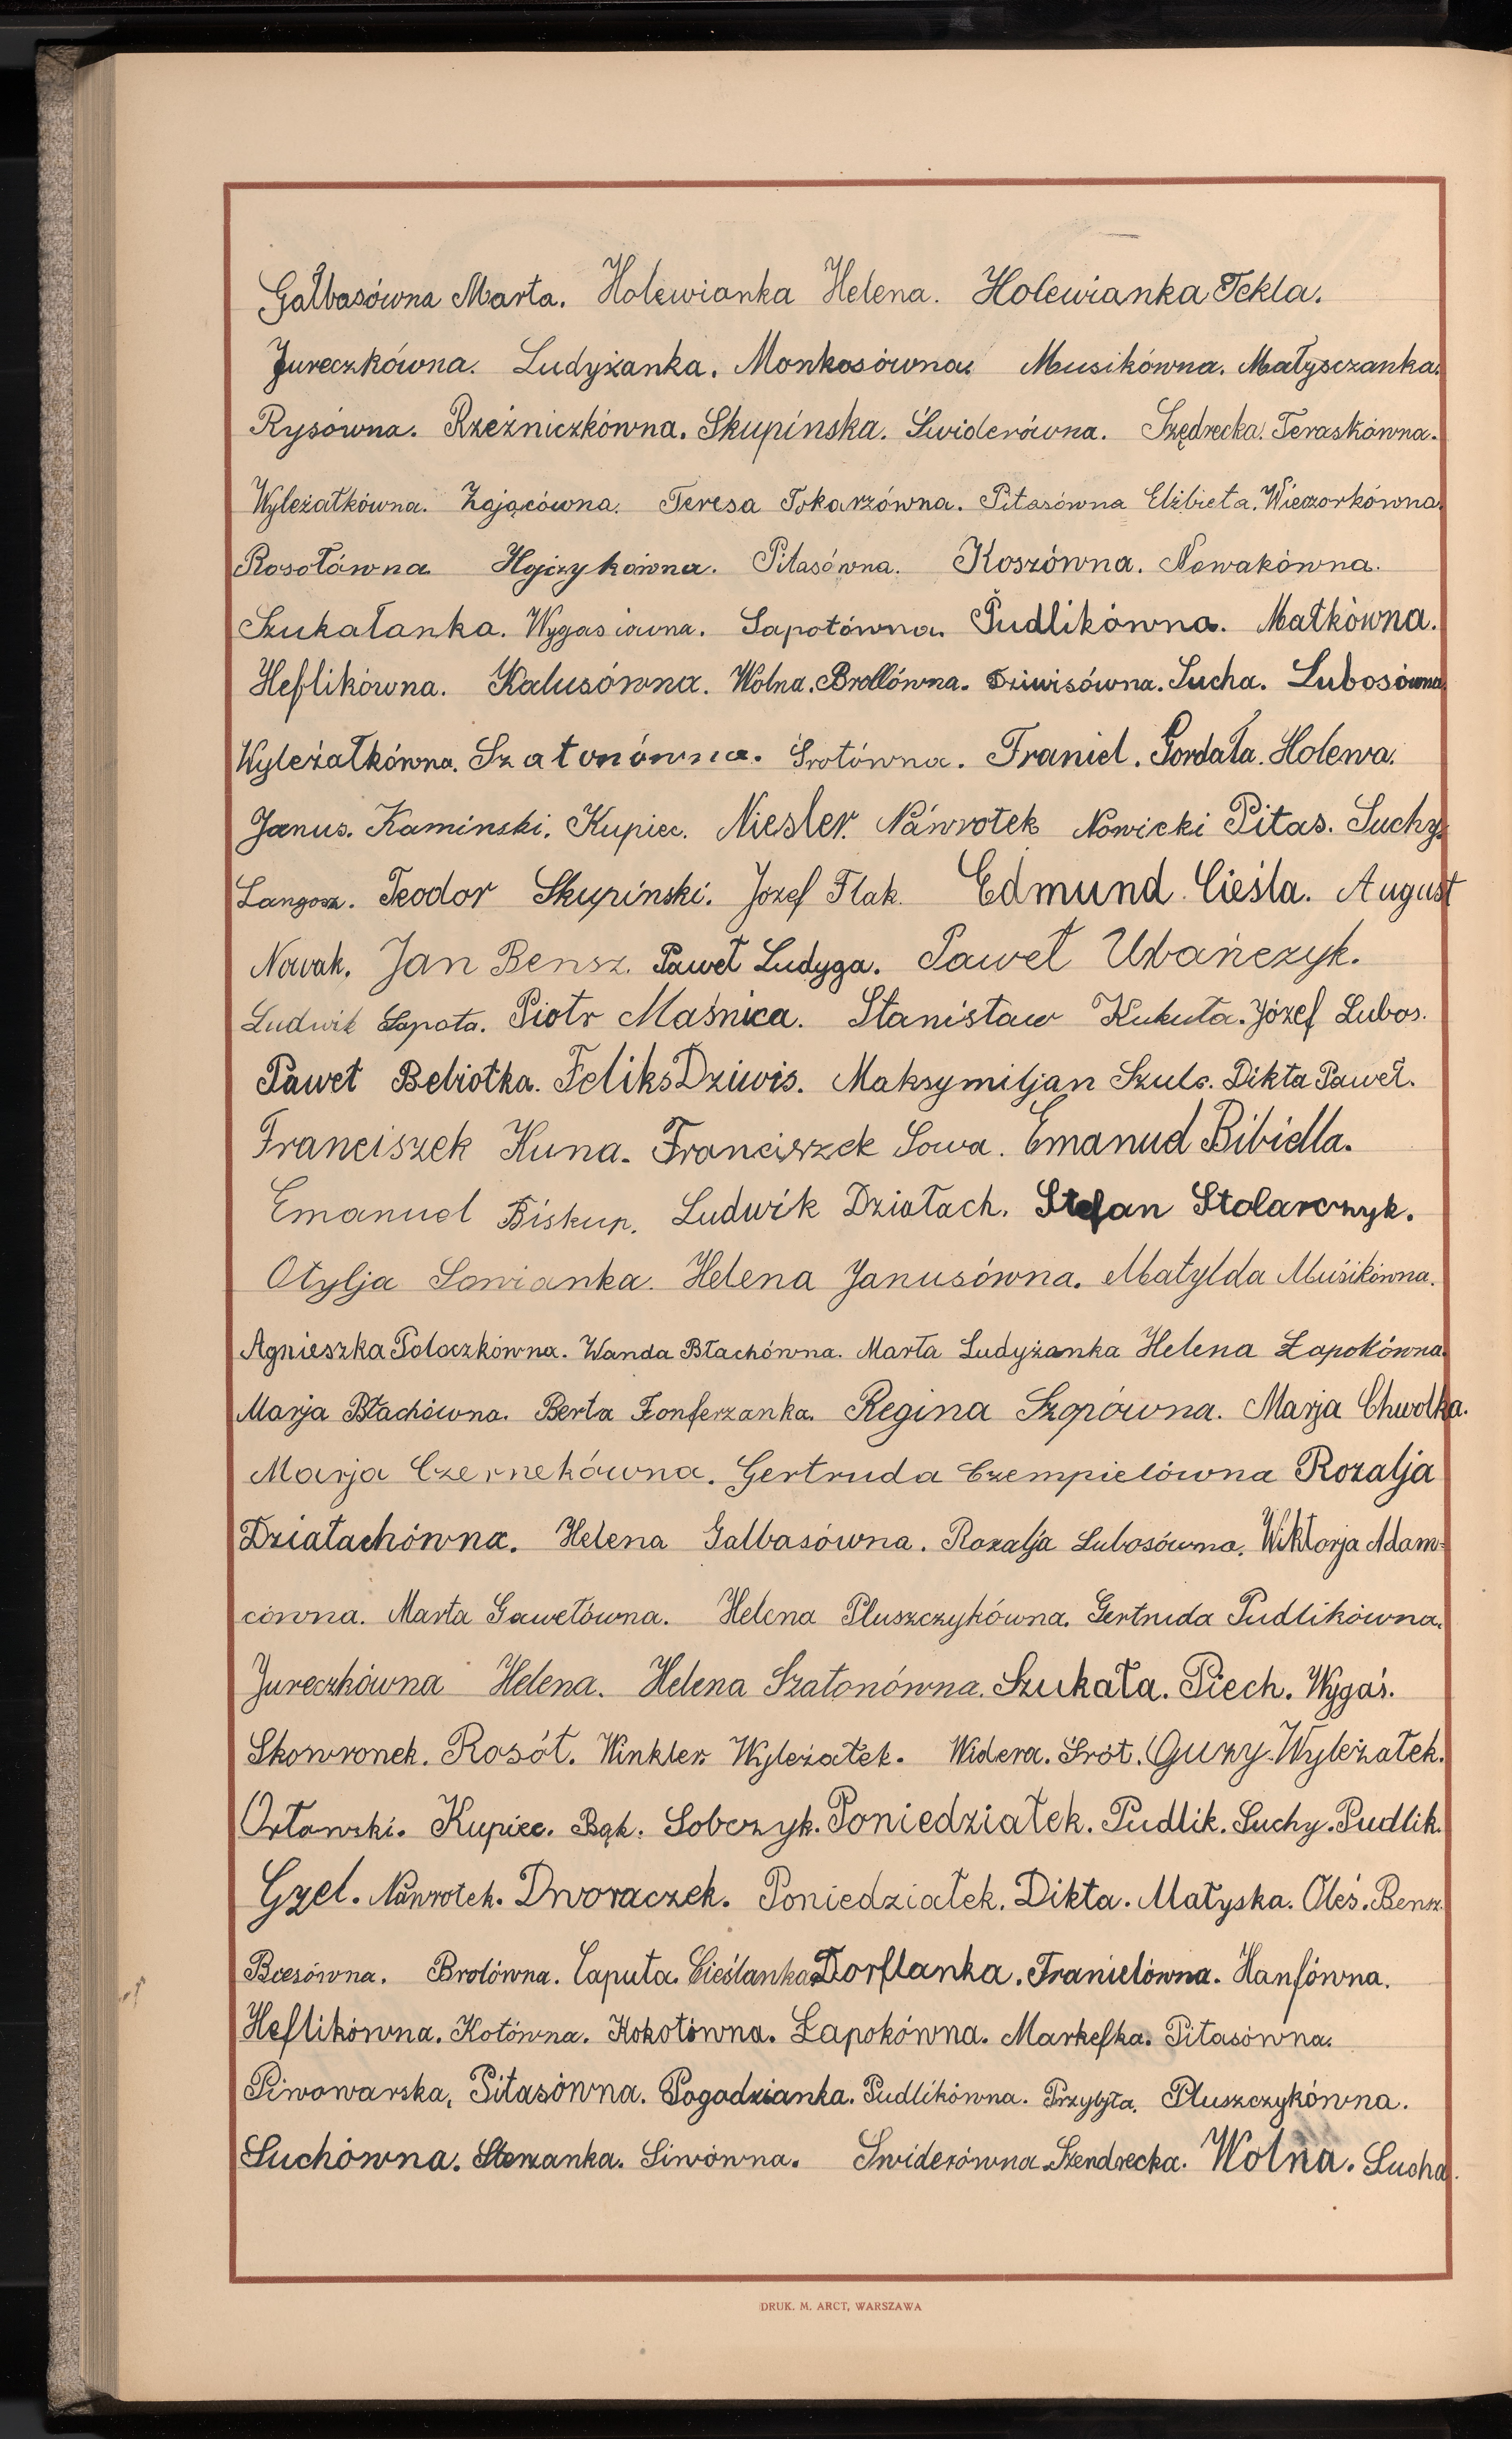 Gałbasówna Marta. Holewianka Helena. Holewianka Tekla.
Jureczkówna. Ludyżanka. Monkosówna. Musikówna. Małysczanka.
Rysówna. Rzeźniczkówna. Skupińska. Świderówna. Szędrecka. Teraskówna.
Wyleżałkówna. Zającówna. Teresa Tokarzówna. Pitasówna Elżbieta. Wieczorkówna.
Rosołówna Hojczykówna. Pitasówna. Koszówna. Nowakówna.
Szukałanka. Wygasiówna. Sapotówna. Pudlikówna. Małkówna.
Heflikówna. Kalusówna. Wolna. Brollówna. Dziwisówna. Sucha. Lubosówna
Wyleżałkówna. Szatonówna. Śrotówna. Franiel. Gordała. Holewa.
Janus. Kaminski. Kupiec. Niesler. Náwrotek Nowicki Pitas. Suchy.
Langosz. Teodor Skupiński. Józef Flak. Edmund Cieśla. August
Nowak. Jan Bensz. Paweł Ludyga. Paweł Ubańczyk.
Ludwik Sapota. Piotr Maśnica. Stanisław Kukuła. Józef Lubos.
Paweł Bebiotka. Feliks Dziwis. Maksymiljan Szulc. Dikta Paweł.
Franciszek Kuna. Franciszek Sowa. Emanuel Bibiella.
Emanuel Biskup. Ludwik Działach. Stefan Stolarczyk.
Otylja Sowianka. Helena Janusówna. Matylda Musikówna.
Agnieszka Polaczkówna. Wanda Błachówna. Marta Ludyżanka Helena Łapokówna.
Marja Błachówna. Berta Zonferzanka. Regina Szopówna. Marja Chwołka.
Marja Czernekówna. Gertruda Czempielówna Rozalja
Działachówna. Helena Galbasówna. Rozalja Lubosówna. Wiktorja Adam-
cówna. Marta Gawełówna. Helena Pluszczykówna. Gertruda Pudlikówna.
Jureczkówna Helena. Helena Szatonówna. Szukała. Piech. Wygaś.
Skowronek. Rosół. Winkler Wyleżałek. Widera. Śrót. Guzy. Wyleżałek.
Orłowski. Kupiec. Bąk. Sobczyk. Poniedziałek. Pudlik. Suchy. Pudlik.
Gzel. Náwrotek. Dworaczek. Poniedziałek. Dikta. Małyska. Oleś. Bensz.
Bcesówna. Brolówna. Caputa. Cieślanka Dorflanka. Franielówna. Hanfówna.
Heflikówna. Kotówna. Kokotówna. Łapokówna. Markefka. Pitasówna.
Piwowarska, Pitasówna. Pogodzianka. Pudlikówna. Przybyła. Pluszczykówna.
Suchówna. Siwówna. Swiderówna Szendrecka. Wolna. Sucha.
DRUK. M. ARCT, WARSZAWA